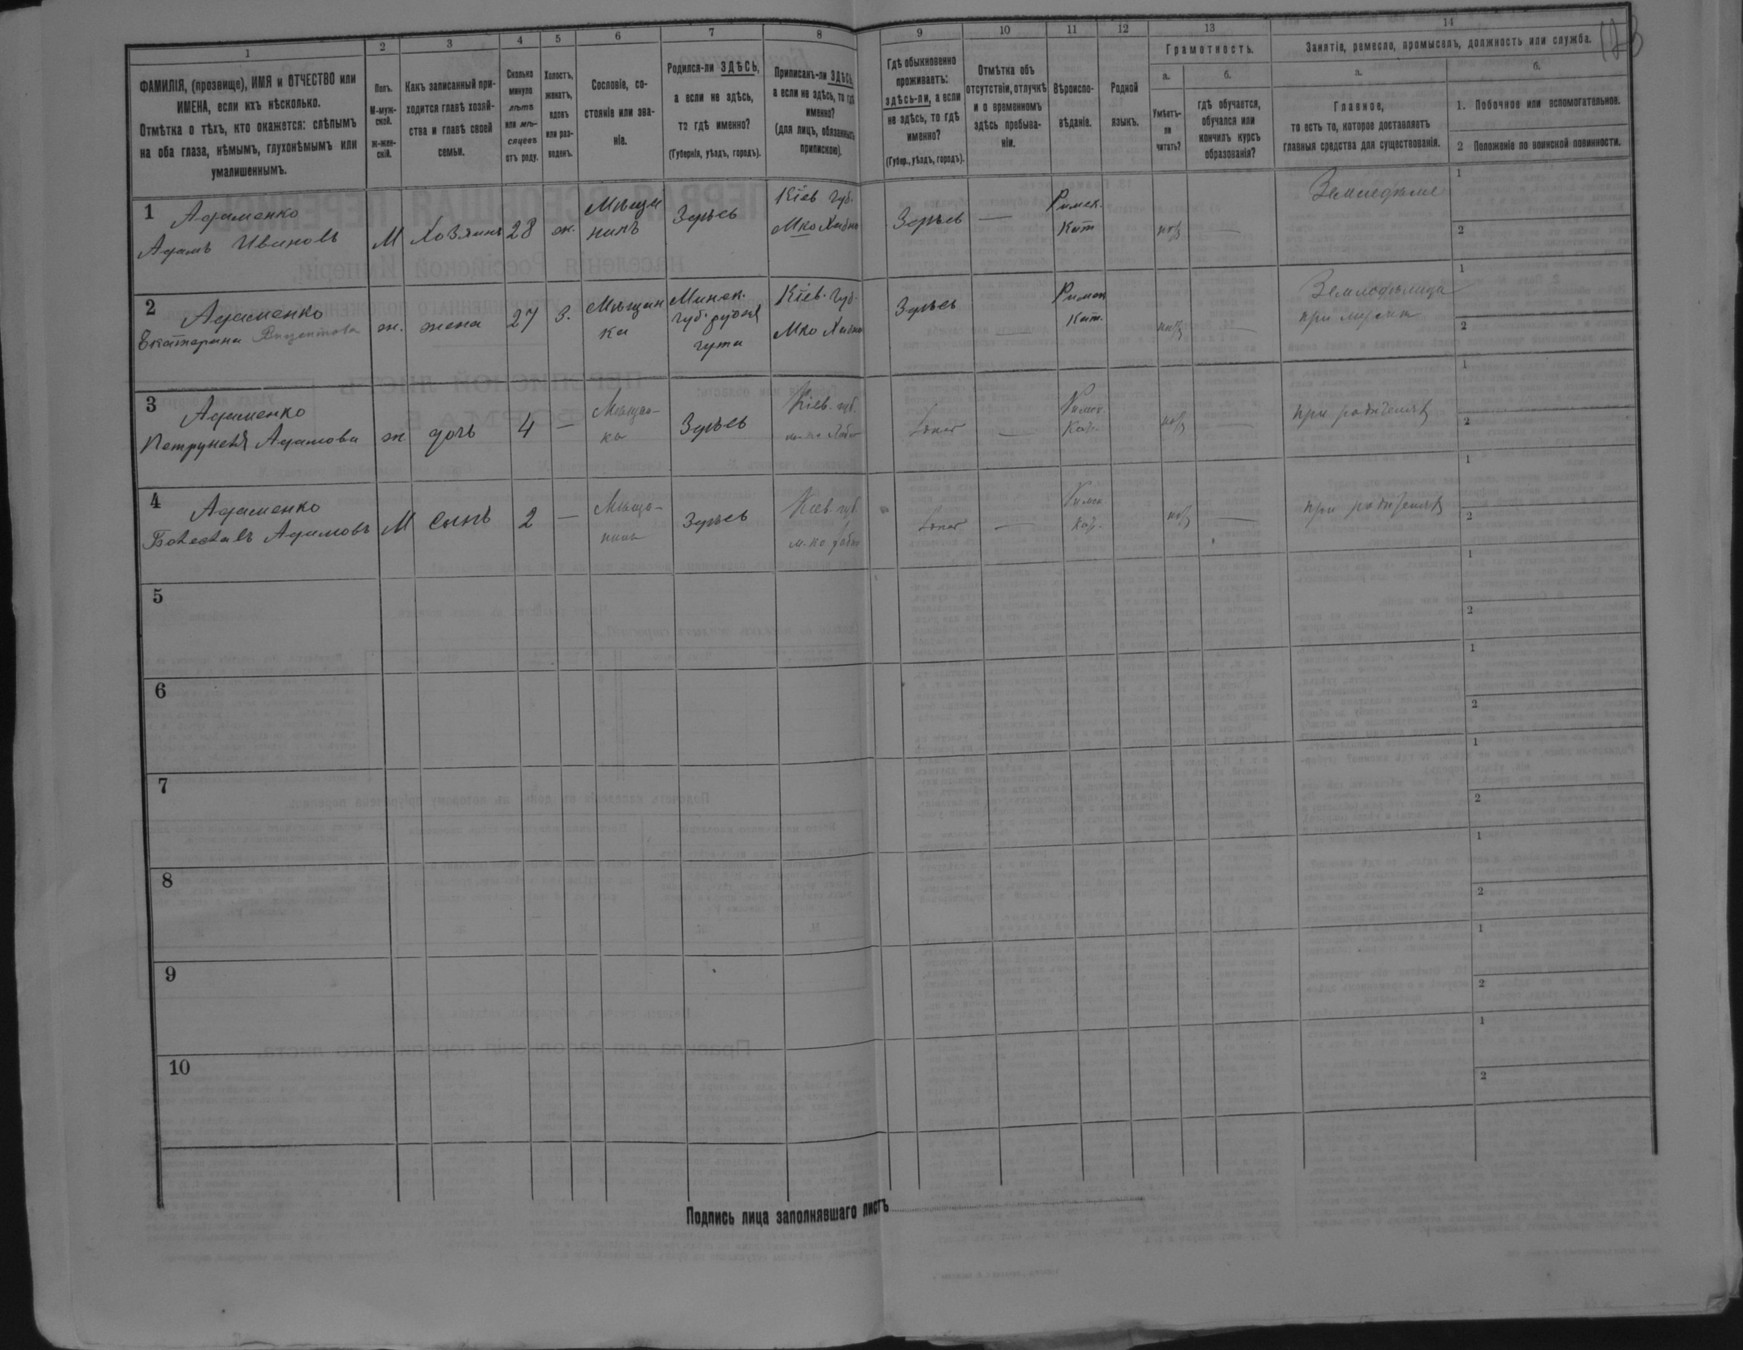 1 2 3 4 5 6 7 8 9 10 11 12 13 14
ФАМИЛІЯ, (прозвище), ИМЯ и ОТЧЕСТВО или
ИМЕНА, если ихъ нѣсколько.
Отмѣтка о тѣхъ, кто окажется: слѣпымъ
на оба глаза, нѣмымъ, глухонѣмымъ или
умалишеннымъ.
Полъ.
М-муж-
ской.
ж-жен-
скій.
Какъ записанный при-
ходится главѣ хозяй-
ства и главѣ своей
семьи.
Сколько
минуло
лѣтъ
или мѣ-
сяцевъ
отъ роду.
Холостъ,
женатъ,
вдовъ
или раз-
веденъ.
Сословіе, со-
стояніе или зва-
ніе.
Родился-ли ЗДѢСЬ,
а если не здѣсь,
то гдѣ именно?
(Губернія, уѣздъ, городъ).
Приписанъ-ли ЗДѢСЬ,
а если не здѣсь, то гдѣ
именно?
(для лицъ, обязанныхъ
припискою).
Гдѣ обыкновенно
проживаетъ:
здѣсь-ли, а если
не здѣсь, то гдѣ
именно?
(Губер., уѣздъ, городъ).
Отмѣтка объ
отсутствіи, отлучкѣ
и о временномъ
здѣсь пребыва-
ніи.
Вѣроиспо-
вѣданіе.
Родной
языкъ.
Грамотность.
а.
Умѣетъ-
ли
читать?
б.
гдѣ обучается,
обучался или
кончилъ курсъ
образованія?
Занятіе, ремесло, промыселъ, должность или служба.
а.
Главное,
то есть то, которое доставляетъ
главныя средства для существованія.
б.
1. Побочное или вспомогательное.
2 Положеніе по воинской повинности.
1 Адаменко
Адамъ Ивановъ
М Хозяинъ 28 ж.
Мѣщанинъ
Здѣсь
Кіев. губ.
Здѣсь —
Римск.
Кат.
—
Земледѣліе
1
2
2 Адаменко
Екатерина
ж. жена 27 з.
Мѣщанка
Минск.
губ.
гута
Кіев. губ.
Здѣсь —
Римск
Кат.
Земледѣлица
при мужѣ
1
2
3 Адаменко
Петрунеля Адамова
ж дочь 4 —
Мѣщан-
ка
Здѣсь
Кіев. губ.
—
Римск.
Кат.
—
при родителяхъ
1
2
4 Адаменко
Болеславъ Адамовъ
М сынъ 2 —
Мѣща-
нинъ
Здѣсь
Кіев. губ.
—
Римск
Кат.
—
при родителяхъ
1
2
5
1
2
6
1
2
7
1
2
8
1
2
9
1
2
10
1
2
Подпись лица заполнявшаго листъ